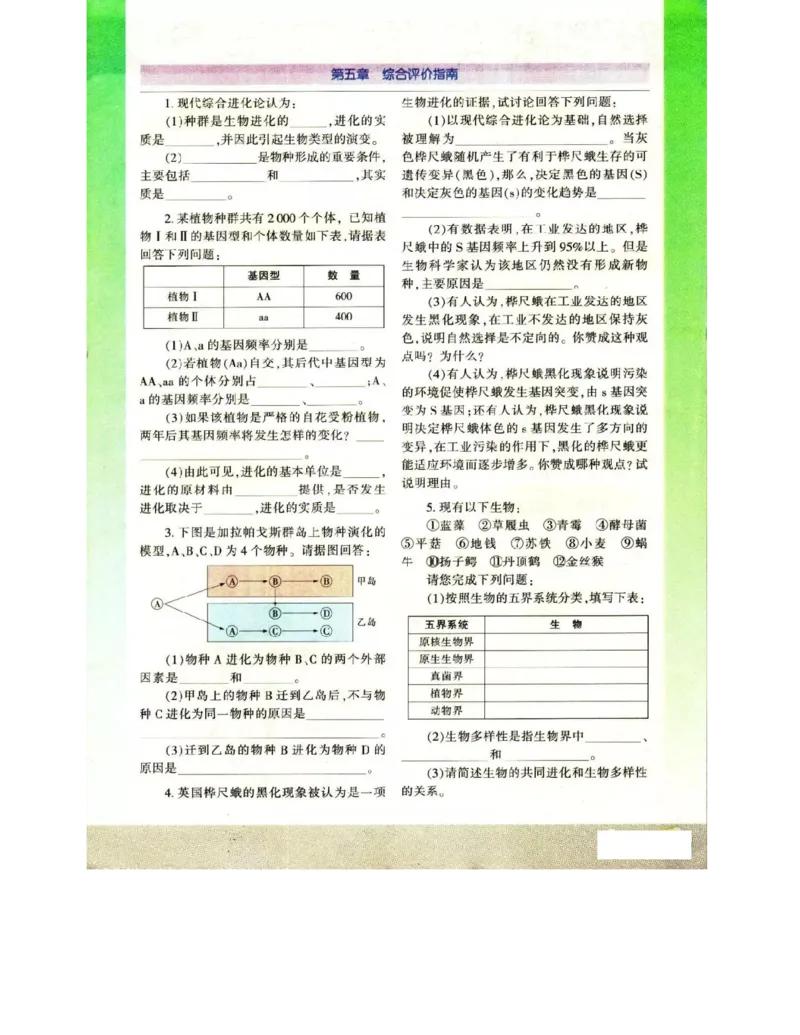 第五章 综合评价指南
1. 现代综合进化论认为：
(1)种群是生物进化的______,进化的实
质是________,并因此引起生物类型的演变。
(2)____________是物种形成的重要条件,
主要包括____________和____________,其实
质是__________。
2. 某植物种群共有 2 000 个个体，已知植
物Ⅰ和Ⅱ的基因型和个体数量如下表,请据表
回答下列问题：
基因型 数 量
植物Ⅰ AA 600
植物Ⅱ aa 400
(1)A、a 的基因频率分别是________。
(2)若植物(Aa)自交,其后代中基因型为
AA、aa 的个体分别占________、________;A、
a 的基因频率分别是________、________。
(3)如果该植物是严格的自花受粉植物,
两年后其基因频率将发生怎样的变化？____
__________________________。
(4)由此可见,进化的基本单位是______,
进化的原材料由__________提供,是否发生
进化取决于________,进化的实质是______。
3. 下图是加拉帕戈斯群岛上物种演化的
模型,A、B、C、D 为 4 个物种。请据图回答：
A B B 甲岛
A
B D
乙岛
A C C
(1)物种 A 进化为物种 B、C 的两个外部
因素是________和________。
(2)甲岛上的物种 B 迁到乙岛后,不与物
种 C 进化为同一物种的原因是____________
______________________________________。
(3)迁到乙岛的物种 B 进化为物种 D 的
原因是______________________________。
4. 英国桦尺蛾的黑化现象被认为是一项
生物进化的证据,试讨论回答下列问题：
(1)以现代综合进化论为基础,自然选择
被理解为________________________。当灰
色桦尺蛾随机产生了有利于桦尺蛾生存的可
遗传变异(黑色),那么,决定黑色的基因(S)
和决定灰色的基因(s)的变化趋势是________
______________________。
(2)有数据表明,在工业发达的地区,桦
尺蛾中的 S 基因频率上升到 95%以上。但是
生物科学家认为该地区仍然没有形成新物
种,主要原因是______________。
(3)有人认为,桦尺蛾在工业发达的地区
发生黑化现象,在工业不发达的地区保持灰
色,说明自然选择是不定向的。你赞成这种观
点吗？为什么？
(4)有人认为,桦尺蛾黑化现象说明污染
的环境促使桦尺蛾发生基因突变,由 s 基因突
变为 S 基因;还有人认为,桦尺蛾黑化现象说
明决定桦尺蛾体色的 s 基因发生了多方向的
变异,在工业污染的作用下,黑化的桦尺蛾更
能适应环境而逐步增多。你赞成哪种观点？试
说明理由。
5. 现有以下生物：
①蓝藻 ②草履虫 ③青霉 ④酵母菌
⑤平菇 ⑥地钱 ⑦苏铁 ⑧小麦 ⑨蜗
牛 ⑩扬子鳄 ⑪丹顶鹤 ⑫金丝猴
请您完成下列问题：
(1)按照生物的五界系统分类,填写下表：
五界系统 生 物
原核生物界
原生生物界
真菌界
植物界
动物界
(2)生物多样性是指生物界中________、
____________和____________。
(3)请简述生物的共同进化和生物多样性
的关系。